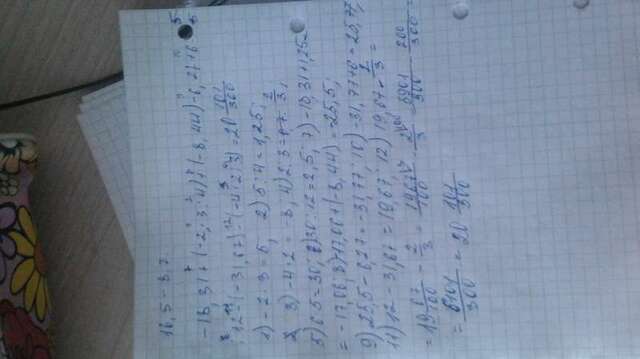 16,5 - 8,7.
-18,31 + (-2 · 3 : 4) + (-8,44) - 6,27 + 6 · 5
: 12 - (-31,67) - (-4 · 2 : 3) = 20 101/300
1) -2 · 3 = 6, 2) 5 : 4 = 1,25;
3) -4 · 2 = -8, 4) 2 : 3 = 2/3,
5) 6 · 5 = 30, 6) 30 : 12 = 2,5; 7) -18,31 + 1,25 =
= -17,06; 8) -17,06 + (-8,44) = -25,5;
9) 25,5 - 6,27 = -31,77; 10) -31,77 + 6 = 25,77;
11) 12 - 31,67 = 19,67; 12) 19,67 - 2/3 =
= 19 67/100 - 2/3 = 1967/100 - 2/3 = 5901/300 - 200/300
= 6101/300 = 20 101/300